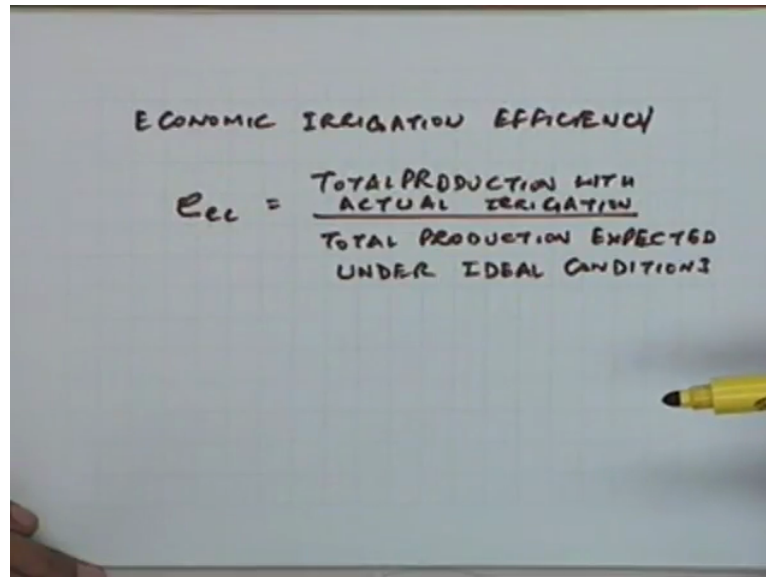 ECONOMIC IRRIGATION EFFICIENCY
TOTAL PRODUCTION WITH
eec = ACTUAL IRRIGATION
TOTAL PRODUCTION EXPECTED
UNDER IDEAL CONDITIONS